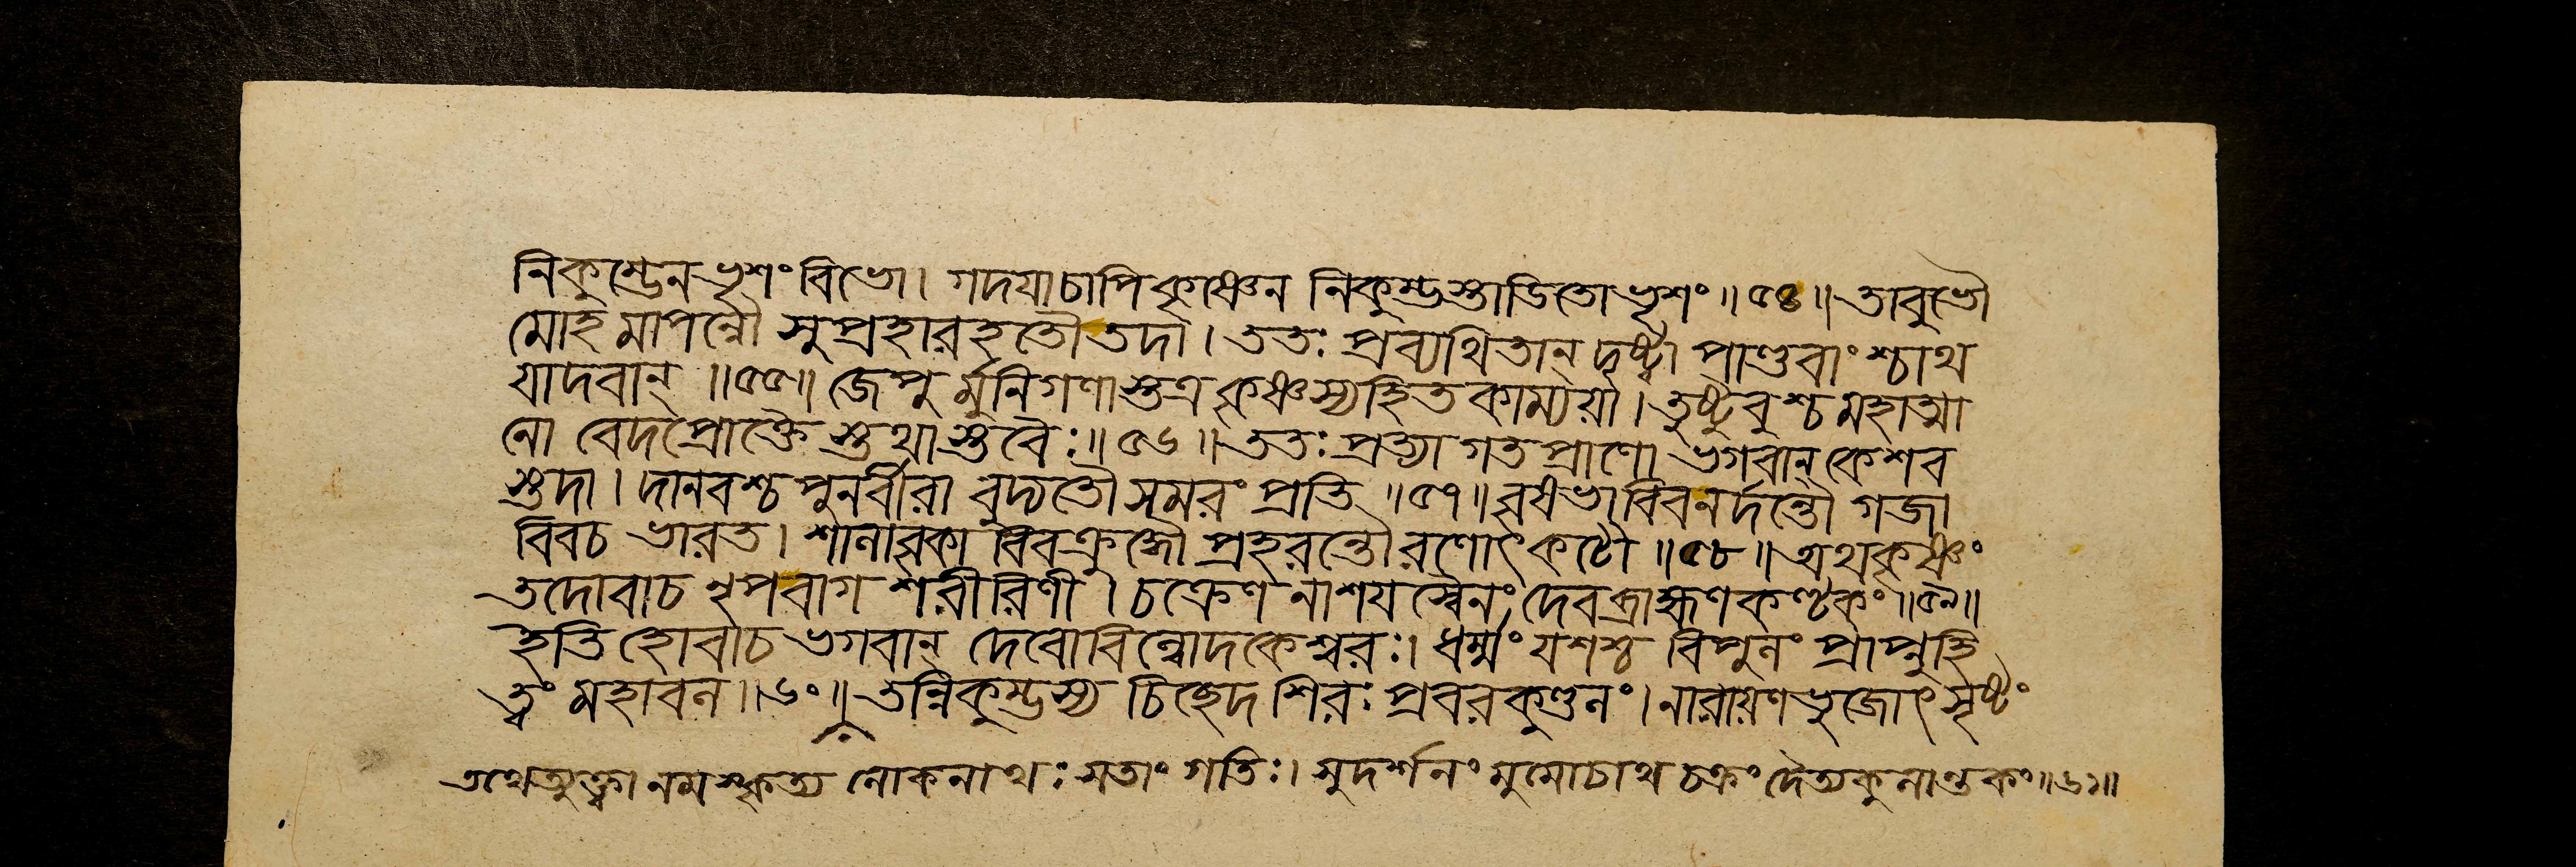 নিকুম্ভেন ভৃশং বিভো। গদয়া চাপি কৃষ্ণেন নিকুম্ভস্তাডিতো ভৃশং॥৫৪॥ তাবুভৌ
মোহমাপন্নৌ সুপ্রহারহতৌ তদা। ততঃ প্রব্যথিতান্ দৃষ্ট্বা পাণ্ডবাংশ্চাথ
যাদবান্॥৫৫॥ জেপুর্মুনিগণাস্তত্র কৃষ্ণস্য হিতকাম্যয়া। তুষ্টুবুশ্চ মহাত্মা
নো বেদপ্রোক্তৈস্তথা স্তবৈঃ॥৫৬॥ ততঃ প্রত্যাগতপ্রাণো ভগবান্ কেশব
স্তদা। দানবশ্চ পুনর্বীরা বুদ্যতৌ সমরং প্রতি॥৫৭॥ বৃষভাবিব নর্দন্তৌ গজা
বিব চ ভারত। শালাবৃকাবিব ক্রুদ্ধৌ প্রহরন্তৌ রণোৎকটৌ॥৫৮॥ অথ কৃষ্ণং
তদোবাচ নৃপ বাগশরীরিণী। চক্রেণ নাশয়স্বৈনং দেবব্রাহ্মণকণ্টকং॥৫৯॥
ইতি হোবাচ ভগবান্ দেবো বিল্বোদকেশ্বরঃ। ধর্ম্মং যশশ্চ বিপুলং প্রাপ্নুহি
ত্বং মহাবল॥৬০॥ তন্নিকুম্ভস্য চিচ্ছেদ শিরঃ প্রবরকুণ্ডলং। নারায়ণভুজোৎসৃষ্টং
তথেত্যুক্ত্বা নমস্কৃত্য লোকনাথঃ সতাং গতিঃ। সুদর্শনং মুমোচাথ চক্রং দৈত্যকুলান্তকং॥৬১॥